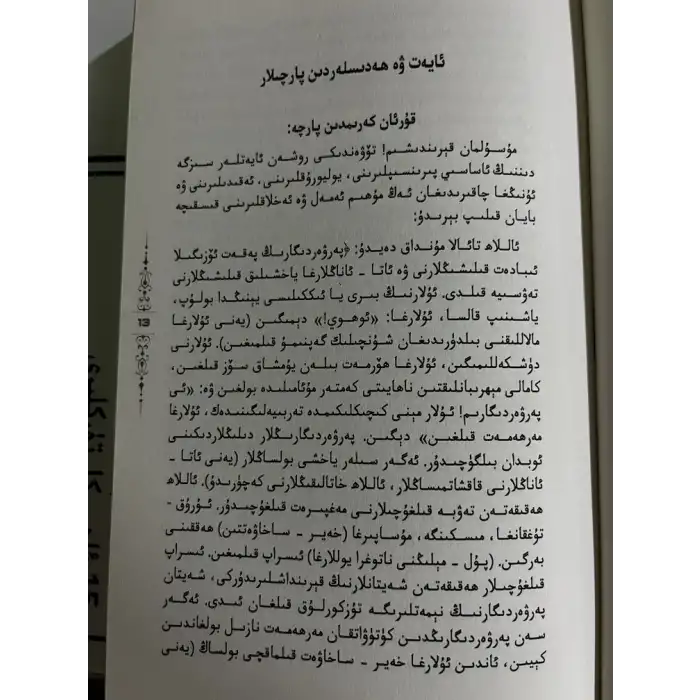 ئايەت ۋە ھەدىسلەردىن پارچىلار
قۇرئان كەرىمدىن پارچە:
مۇسۇلمان قېرىندىشىم! تۆۋەندىكى روشەن ئايەتلەر سىزگە
دىننىڭ ئاساسىي پىرىنسىپلىرىنى، يوليورۇقلىرىنى، ئەقىدىلىرىنى ۋە
ئۇنىڭغا چاقىرىدىغان ئەڭ مۇھىم ئەمەل ۋە ئەخلاقلىرىنى قىسقىچە
بايان قىلىپ بېرىدۇ:
ئاللاھ تائالا مۇنداق دەيدۇ: ﴿پەرۋەردىگارىڭ پەقەت ئۆزىگىلا
ئىبادەت قىلىشىڭلارنى ۋە ئاتا - ئاناڭلارغا ياخشىلىق قىلىشىڭلارنى
تەۋسىيە قىلدى. ئۇلارنىڭ بىرى يا ئىككىلىسى يېنىڭدا بولۇپ،
ياشىنىپ قالسا، ئۇلارغا: «ئوھوي!» دېمىگىن (يەنى ئۇلارغا
مالاللىقنى بىلدۈرىدىغان شۇنچىلىك گەپنىمۇ قىلمىغىن). ئۇلارنى
دۈشكەللىمىگىن، ئۇلارغا ھۆرمەت بىلەن يۇمشاق سۆز قىلغىن،
كامالى مېھرىبانلىقتىن ناھايىتى كەمتەر مۇئامىلىدە بولغىن ۋە: «ئى
پەرۋەردىگارىم! ئۇلار مېنى كىچىكلىكىمدە تەربىيەلىگىنىدەك، ئۇلارغا
مەرھەمەت قىلغىن» دېگىن. پەرۋەردىگارىڭلار دىلىڭلاردىكىنى
ئوبدان بىلگۈچىدۇر. ئەگەر سىلەر ياخشى بولساڭلار (يەنى ئاتا -
ئاناڭلارنى قاقشاتمىساڭلار، ئاللاھ خاتالىقىڭلارنى كەچۈرىدۇ). ئاللاھ
ھەقىقەتەن تەۋبە قىلغۇچىلارنى مەغپىرەت قىلغۇچىدۇر. ئۇرۇق -
تۇغقانغا، مىسكىنگە، مۇساپىرغا (خەير - ساخاۋەتتىن) ھەققىنى
بەرگىن. (پۇل - مېلىڭنى ناتوغرا يوللارغا) ئىسراپ قىلمىغىن. ئىسراپ
قىلغۇچىلار ھەقىقەتەن شەيتانلارنىڭ قېرىنداشلىرىدۇركى، شەيتان
پەرۋەردىگارنىڭ نېمەتلىرىگە تۇزكورلۇق قىلغان ئىدى. ئەگەر
سەن پەرۋەردىگارىڭدىن كۈتۈۋاتقان مەرھەمەت نازىل بولغاندىن
كېيىن، ئاندىن ئۇلارغا خەير - ساخاۋەت قىلماقچى بولساڭ (يەنى
13